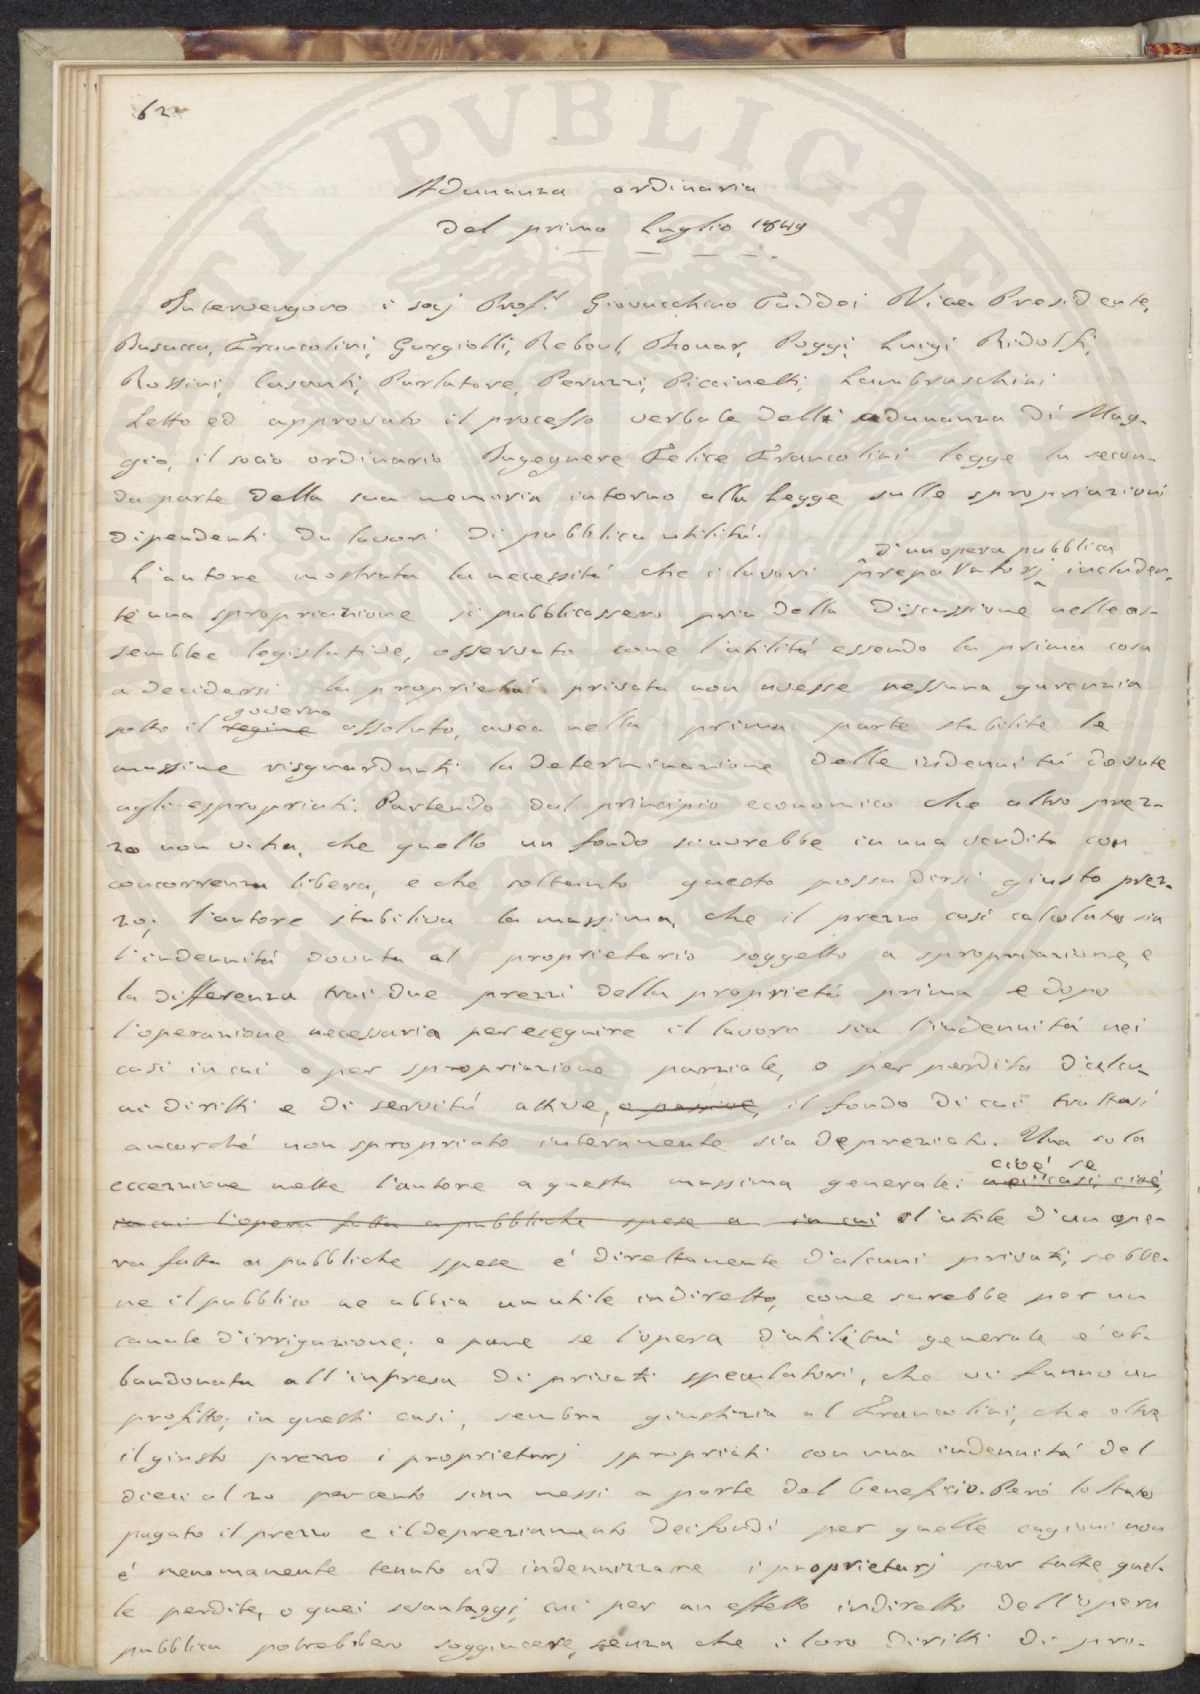 62
Adunanza ordinaria
del primo Luglio 1849
Intervengono i socj Prof.r Giovacchino Taddei Vice Presidente,
Busacca, Francolini, Gargiolli, Reboul, Thouar, Poggi, Luigi Ridolfi,
Rossini, Casanti, Parlatore, Peruzzi, Piccinetti, Lambruschini
Letto ed approvato il processo verbale della adunanza di Mag-
gio, il socio ordinario Ingegnere Felice Francolini legge la secon-
da parte della sua memoria intorno alla Legge sulle spropriazioni
dipendenti da lavori di pubblica utilitá.
d'un opera pubblica
L'autore mostrata la necessitá che i lavori preparatorj includen-
te una spropriazione si pubblicassero pria della discussione nelle as-
semblee legislative, osservato come l'utilitá essendo la prima cosa
a decidersi la proprietá privata non avesse nessuna garanzia
governo
sotto il regime assoluto, avea nella prima parte stabilite le
massime risguardanti la determinazione delle indennitá dovute
agli espropriati. Partendo dal principio economico che altro prez-
zo non vi ha, che quello un fondo s'avrebbe in una vendita con
concorrenza libera, e che soltanto questo possa dirsi giusto prez-
zo; l'autore stabiliva la massima, che il prezzo cosí calcolato sia
l'indennitá dovuta al proprietario soggetto a spropriazione, e
la differenza trai due prezzi della proprietá prima e dopo
l'operazione necessaria per eseguire il lavoro sia l'indennitá nei
casi in cui o per spropriazione parziale, o per perdita d'alcu-
ni diritti e di servitú attive, e passive, il fondo di cui trattasi
ancorché non spropriato interamente sia deprezzato. Una sola
cioé se
eccezzione mette l'autore a questa massima generale: nei casi, cioé,
in cui l'opera fatta a pubbliche spese a in cui l'utile d'un ope-
ra fatta a pubbliche spese é direttamente d'alcuni privati, sebbe-
ne il pubblico ne abbia un utile indiretto, come sarebbe per un
canale d'irrigazione; o pure se l'opera d'utilitá generale é ab-
bandonata all'impresa di privati speculatori, che vi fanno un
profitto; in questi casi, sembra giustizia al Francolini, che oltre
il giusto prezzo i proprietarj spropriati con una indennitá del
dieci al 20 per cento sian messi a parte del beneficio. Peró lo Stato
pagato il prezzo e il deprezzamento dei fondi per quelle cagioni non
é menomamente tenuto ad indennizzare i proprietarj per tutte quel-
le perdite, o quei svantaggi, cui per un effetto indiretto dell'opera
pubblica potrebbero soggiacere, senza che i loro diritti di pro-